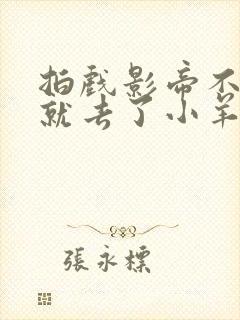 拍戏影帝不
就去了小羊
張永標